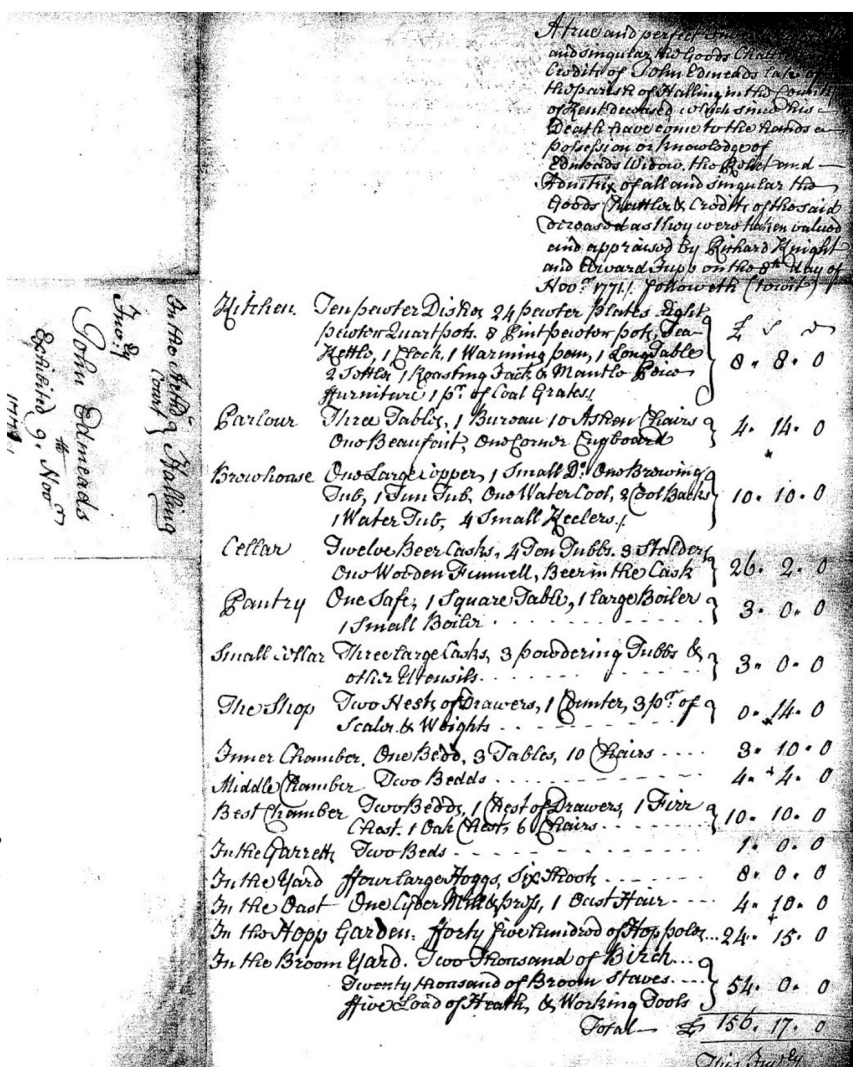 A true and perfect
and singular the Goods Chattles
Credits of John Edmeads late of
the parish of Halling in the County
of Kent deceased which since his
Death have come to the hands
possession or knowledge of
Edmeads Widow, the Relict and
Admtrix of all and singular the
Goods Chattles & Credits of the said
deceased as they were taken valued
and appraised by Richard Knight
and Edward Tupp on the 8th day of
Novr. 1771. followeth (towit)
£ s d
Kitchen. Ten pewter Dishes 24 pewter plates Eight
pewter Quart pots. 8 Pint pewter pots, Tea
Kettle, 1 Clock, 1 Warming pan, 1 Long Table
2 Settles 1 Roasting Jack & Mantle Peice
ffurniture 1 pr. of Coal Grates 8. 8. 0
Parlour Three Tables, 1 Bureau 10 Ashen Chairs
One Beaufait, One Corner Cupboard 4. 14. 0
Brewhouse One Large Copper, 1 Small Do. One Brewing
Tub, 1 Tun Tub, One Water Cool, 3 Cool Backs
1 Water Tub, 4 Small Keelers 10. 10. 0
Cellar Twelve Beer Casks, 4 Ton Tubbs. 3 Stalders
One Wooden Funnell, Beer in the Cask 26. 2. 0
Pantry One Safe, 1 Square Table, 1 large Boiler
1 Small Boiler 3. 0. 0
Small Cellar Three large Casks, 3 powdering Tubbs &
other Utensils 3. 0. 0
The Shop Two Nests of Drawers, 1 Counter, 3 pr. of
Scales & Weights 0. 14. 0
Inner Chamber, One Bedd, 3 Tables, 10 Chairs 3. 10. 0
Middle Chamber Two Bedds 4. 4. 0
Best Chamber Two Bedds, 1 Chest of Drawers, 1 Firr
Chest. 1 Oak Chest, 6 Chairs 10. 10. 0
In the Garrett Two Beds 1. 0. 0
In the Yard ffour large Hoggs, Six Shoots 8. 0. 0
In the Oast One Cyder Mill & press, 1 Oast Hair 4. 10. 0
In the Hopp Garden. fforty five hundred of Hop poles 24. 15. 0
In the Broom Yard. Two Thousand of Birch
Twenty thousand of Broom Staves
ffive Load of Heath, & Working Tools 54. 0. 0
Total £ 156. 17. 0
This
In the
Court
Halling
Invry
John Edmeads
Exhibited 9th Novr
1771